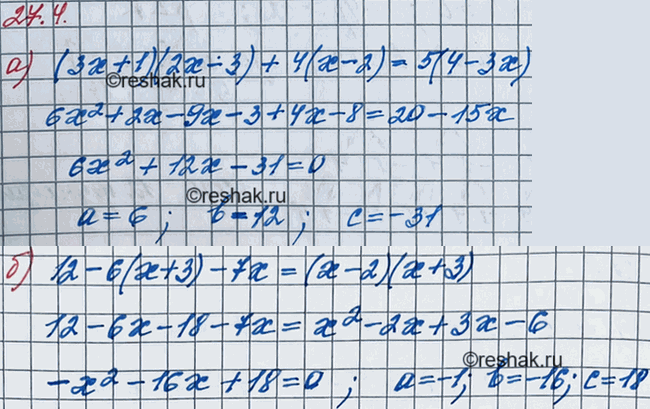 27.4.
а) (3x+1)(2x-3) + 4(x-2) = 5(4-3x)
©reshak.ru
6x² + 2x - 9x - 3 + 4x - 8 = 20 - 15x
6x² + 12x - 31 = 0
©reshak.ru
a = 6 ; b = 12 ; c = -31
б) 12 - 6(x+3) - 7x = (x-2)(x+3)
12 - 6x - 18 - 7x = x² - 2x + 3x - 6
©reshak.ru
-x² - 16x + 18 = 0 ; a = -1; b = -16; c = 18